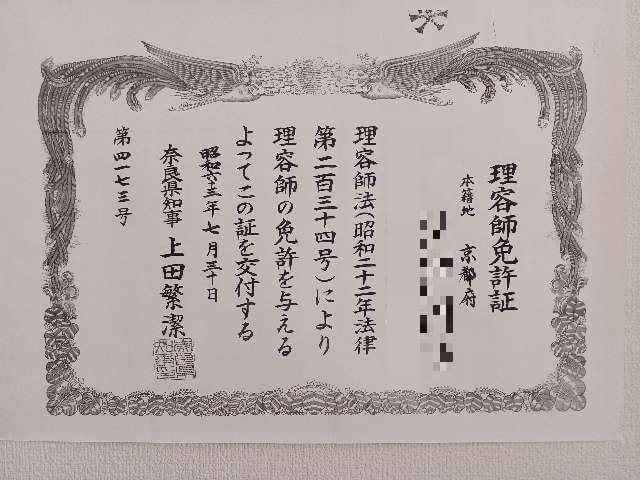 理容師免許証
本籍地 京都府
理容師法(昭和二十二年法律
第二百三十四号)により
理容師の免許を与える
よってこの証を交付する
昭和六十三年七月三十日
奈良県知事 上田繁潔
第四一七三号